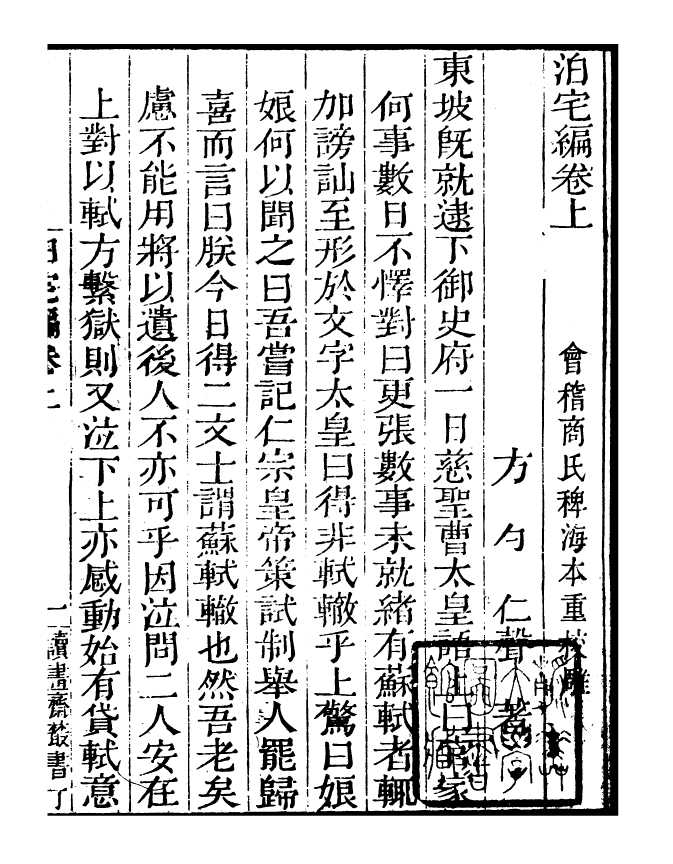 泊宅編卷上
會稽商氏稗海本重校雕
方勺　仁聲　著
東坡旣就逮下御史府一日慈聖曹太皇語上曰官家
何事數日不懌對曰更張數事未就緒有蘇軾者輒
加謗訕至形於文字太皇曰得非軾轍乎上驚曰娘
娘何以聞之曰吾嘗記仁宗皇帝策試制舉人罷歸
喜而言曰朕今日得二文士謂蘇軾轍也然吾老矣
慮不能用將以遺後人不亦可乎因泣問二人安在
上對以軾方繫獄則又泣下上亦感動始有貸軾意
泊宅編卷上
一
讀畫齋叢書